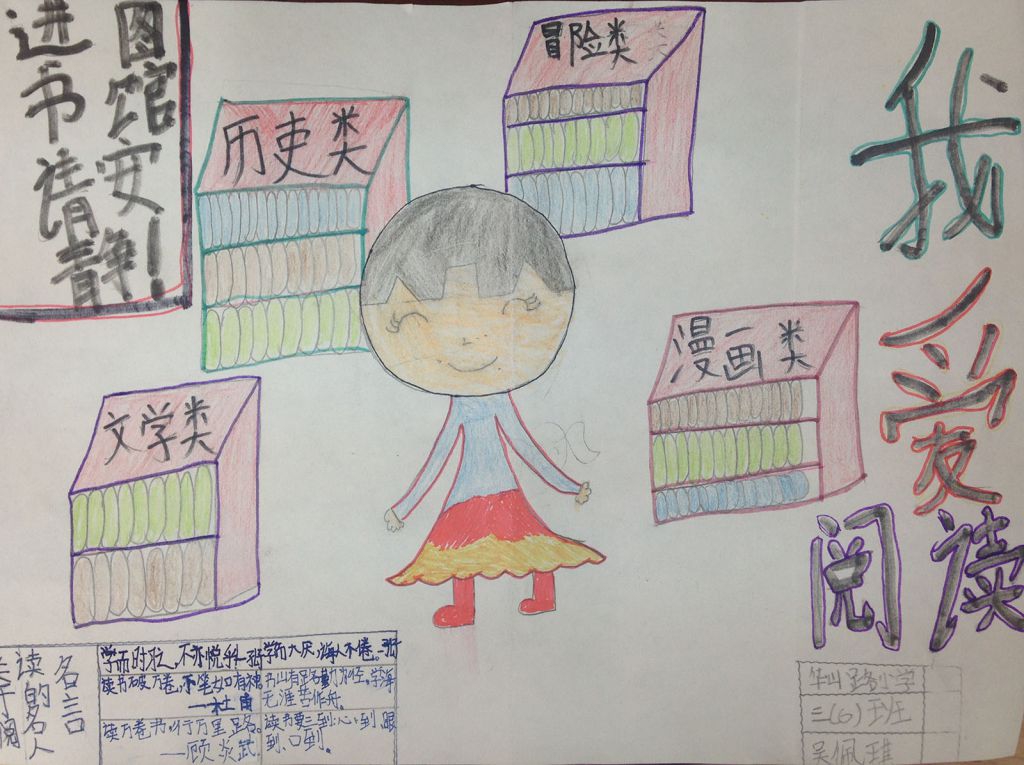 进图
书馆
请安
静！
历史类
冒险类
文学类
漫画类
我
爱
阅读
名言
读的名人
关于阅
不亦悦
学而不厌，诲人不倦。
读书破万卷，
有神
——杜甫
书山有路勤为径，学海
无涯苦作舟。
读万卷书，行万里路。
——顾炎武
读书要三到：心到、眼
到、口到。
牛山路小学
三(6)班
吴佩